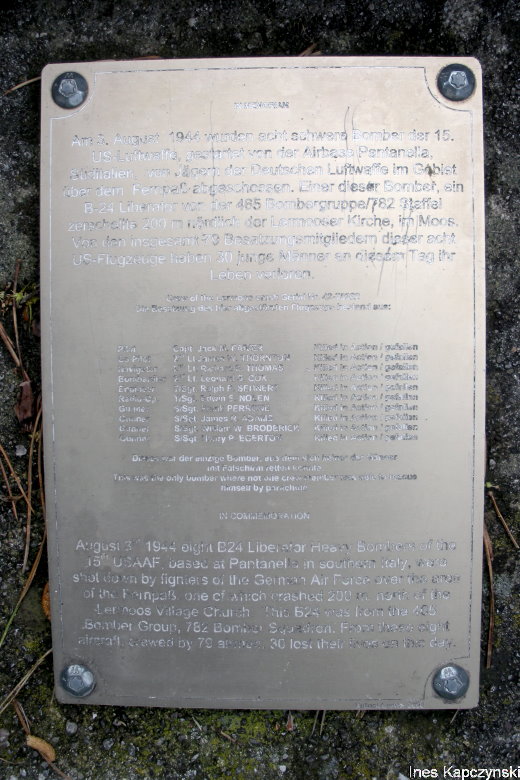 Am 3. August 1944 wurden acht schwere Bomber der 15.
US-Luftwaffe, gestartet von der Airbase Pantanella,
Süditalien, von Jägern der Deutschen Luftwaffe im Gebiet
über dem Fernpaß abgeschossen. Einer dieser Bomber, ein
B-24 Liberator von der 485 Bombergruppe/782 Staffel
zerschellte 200 m nördlich der Lermooser Kirche, im Moos.
Von den insgesamt 79 Besatzungsmitgliedern dieser acht
US-Flugzeuge haben 30 junge Männer an diesem Tag ihr
Leben verloren.
Crew of the
Die Besatzung des hier abgestürzten Flugzeugs bestand aus:
Pilot Capt. Jack Killed in Action / gefallen
Co-Pilot Lt. James THORNTON Killed in Action / gefallen
Navigator Lt. THOMAS Killed in Action / gefallen
Bombardier Lt. Leonard COX Killed in Action / gefallen
Engineer T/Sgt. Ralph Killed in Action / gefallen
Radio Op. T/Sgt. Edwin E. NOLEN Killed in Action / gefallen
Gunner S/Sgt. PERRONE Killed in Action / gefallen
Gunner S/Sgt. James Killed in Action / gefallen
Gunner S/Sgt. William W. BRODERICK Killed in Action / gefallen
Gunner S/Sgt. Harry P. EGERTON Killed in Action / gefallen
Dieses war der einzige Bomber, aus dem sich keiner der Männer
mit Fallschirm retten konnte.
This was the only bomber where not one crew member was able to rescue
himself by parachute
IN COMMEMORATION
August 3rd 1944 eight B24 Liberator Heavy Bombers of the
15th USAAF, based at Pantanella in southern Italy, were
shot down by fighters of the German Air Force over the area
of the Fernpaß, one of which crashed 200 m. north of the
Lermoos Village Church. This B24 was from the 485
Bomber Group, 782 Bomber Squadron. From these eight
aircraft, crewed by 79 airmen, 30 lost their lives on that day.
Ines Kapczynski